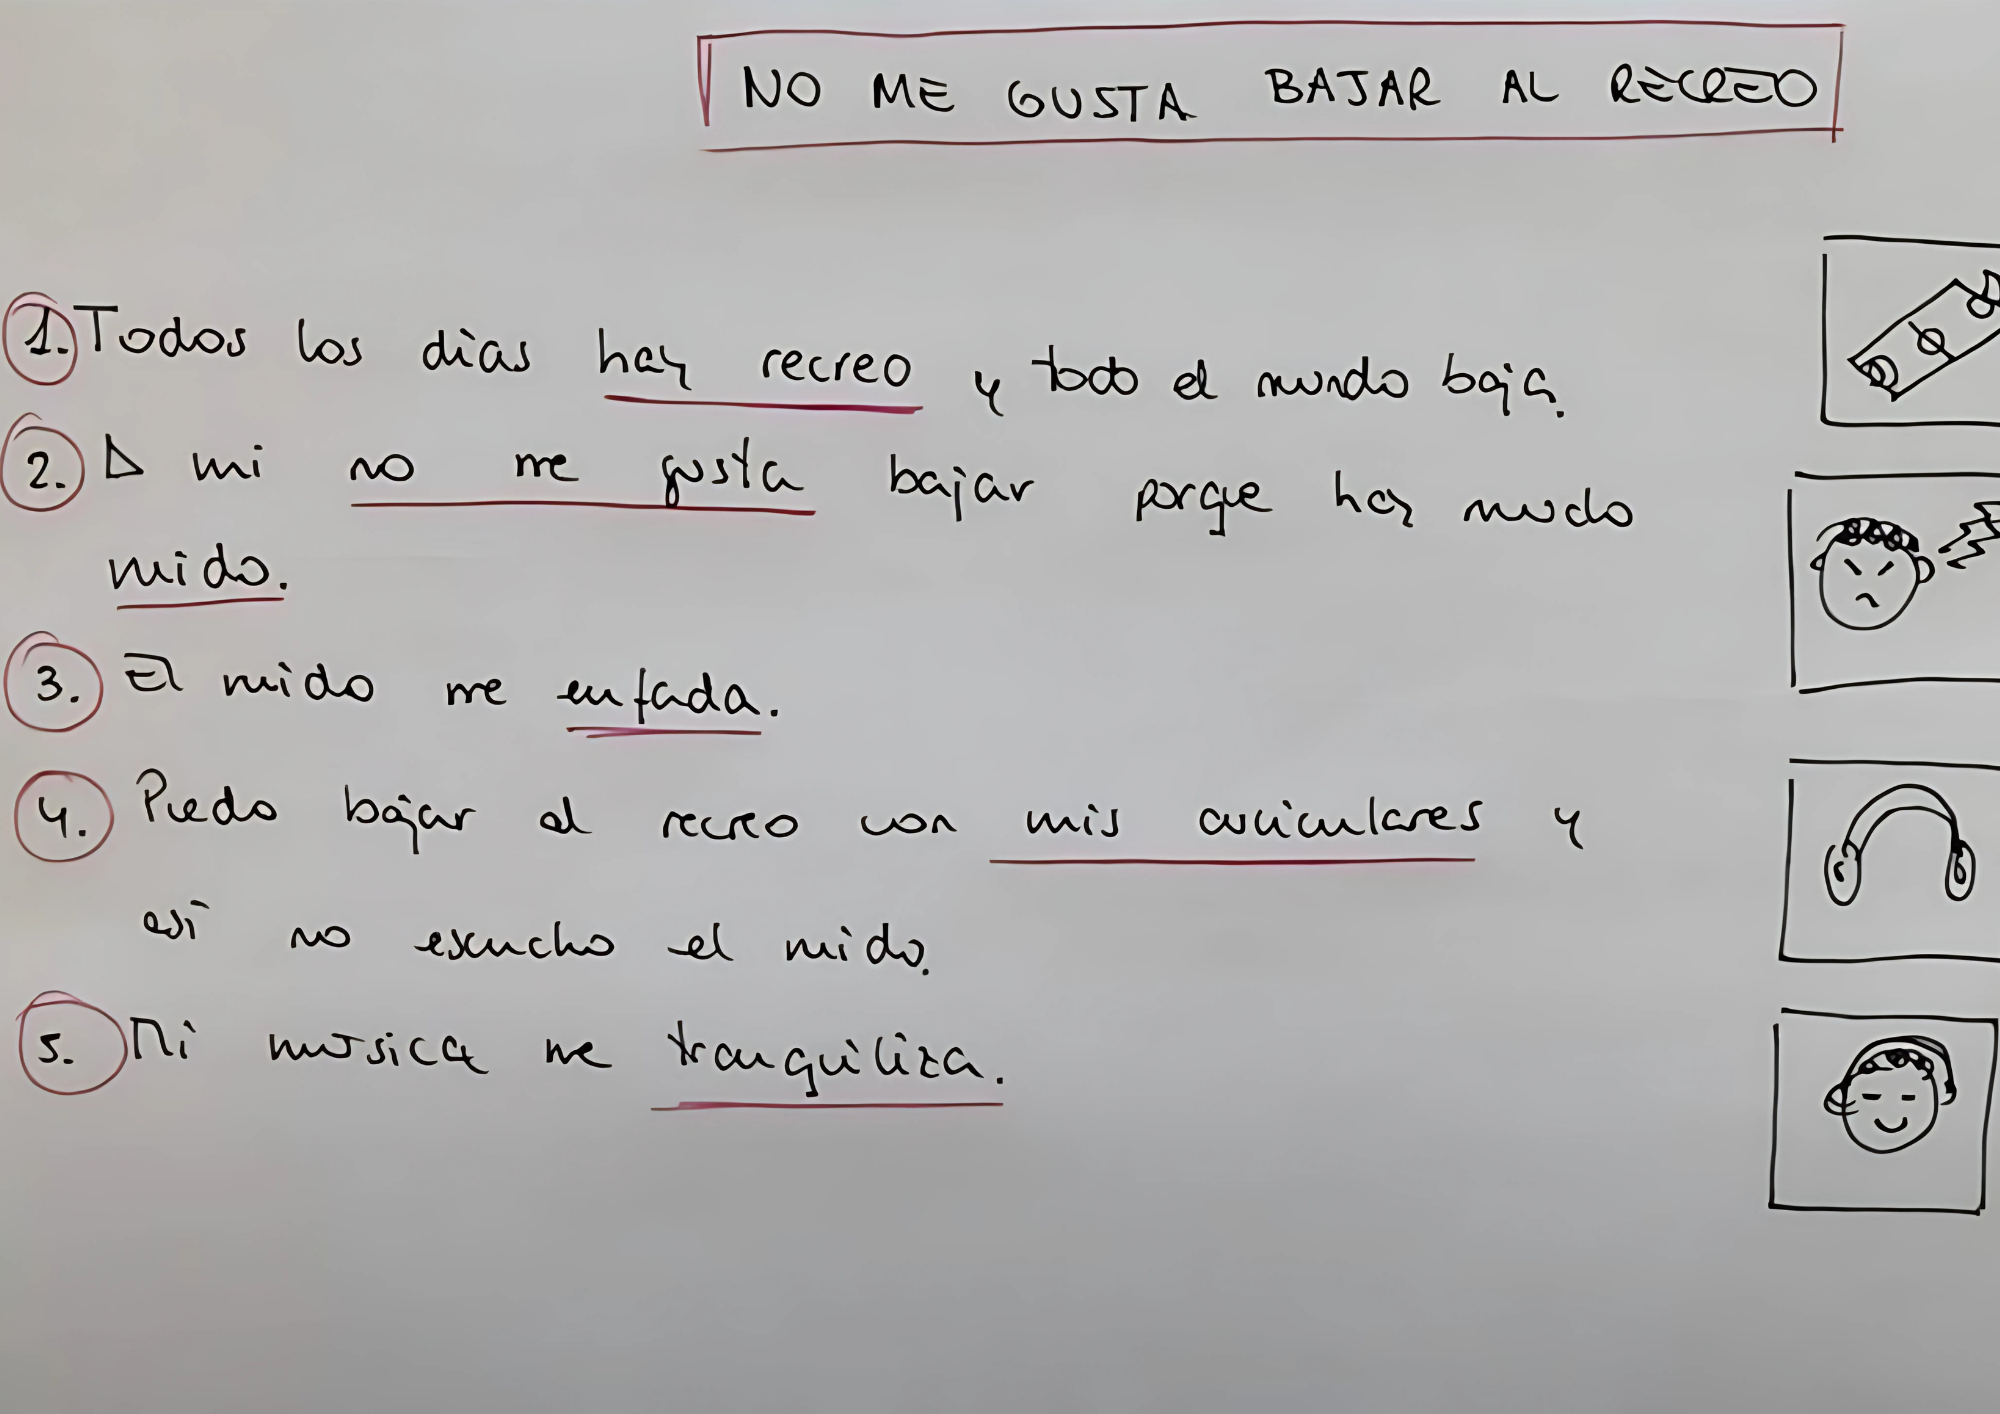 NO ME GUSTA BAJAR AL RECREO
1. Todos los dias hay recreo y todo el mundo baja.
2. A mi no me gusta bajar porque hay mucho
ruido.
3. El ruido me enfada.
4. Puedo bajar al recreo con mis auriculares y
así no escucho el ruido.
5. Mi musica me tranquiliza.